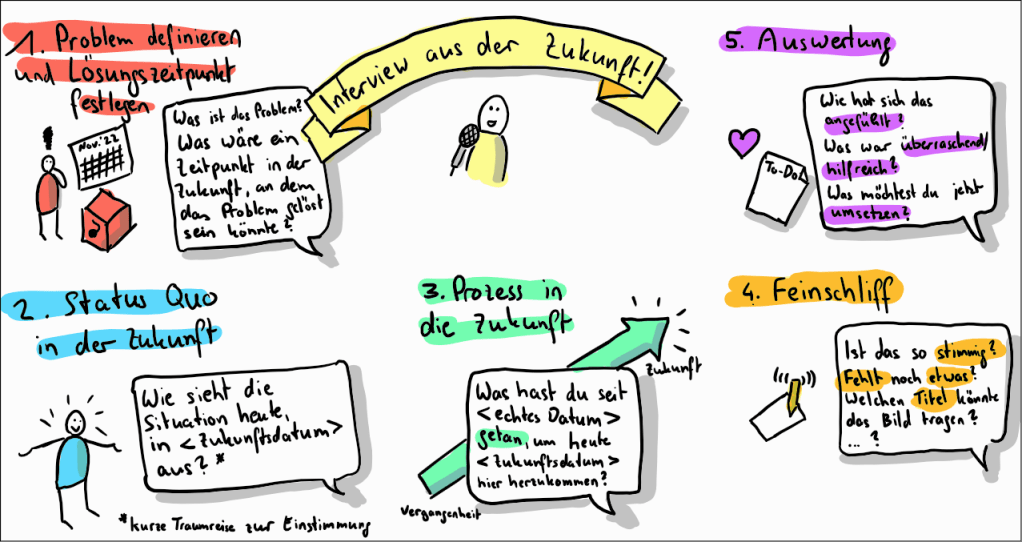 Interview aus der Zukunft!
1. Problem definieren
und Lösungszeitpunkt
festlegen
Nov. '22
Was ist das Problem?
Was wäre ein
Zeitpunkt in der
Zukunft, an dem
das Problem gelöst
sein könnte?
2. Status Quo
in der Zukunft
Wie sieht die
Situation heute,
in <Zukunftsdatum>
aus? *
* kurze Traumreise zur Einstimmung
3. Prozess in
die Zukunft
Zukunft
Was hast du seit
<echtes Datum>
getan, um heute
<Zukunftsdatum>
hier herzukommen?
Vergangenheit
4. Feinschliff
Ist das so stimmig?
Fehlt noch etwas?
Welchen Titel könnte
das Bild tragen?
... ?
5. Auswertung
To-Do
Wie hat sich das
angefühlt?
Was war überraschend/
hilfreich?
Was möchtest du jetzt
umsetzen?